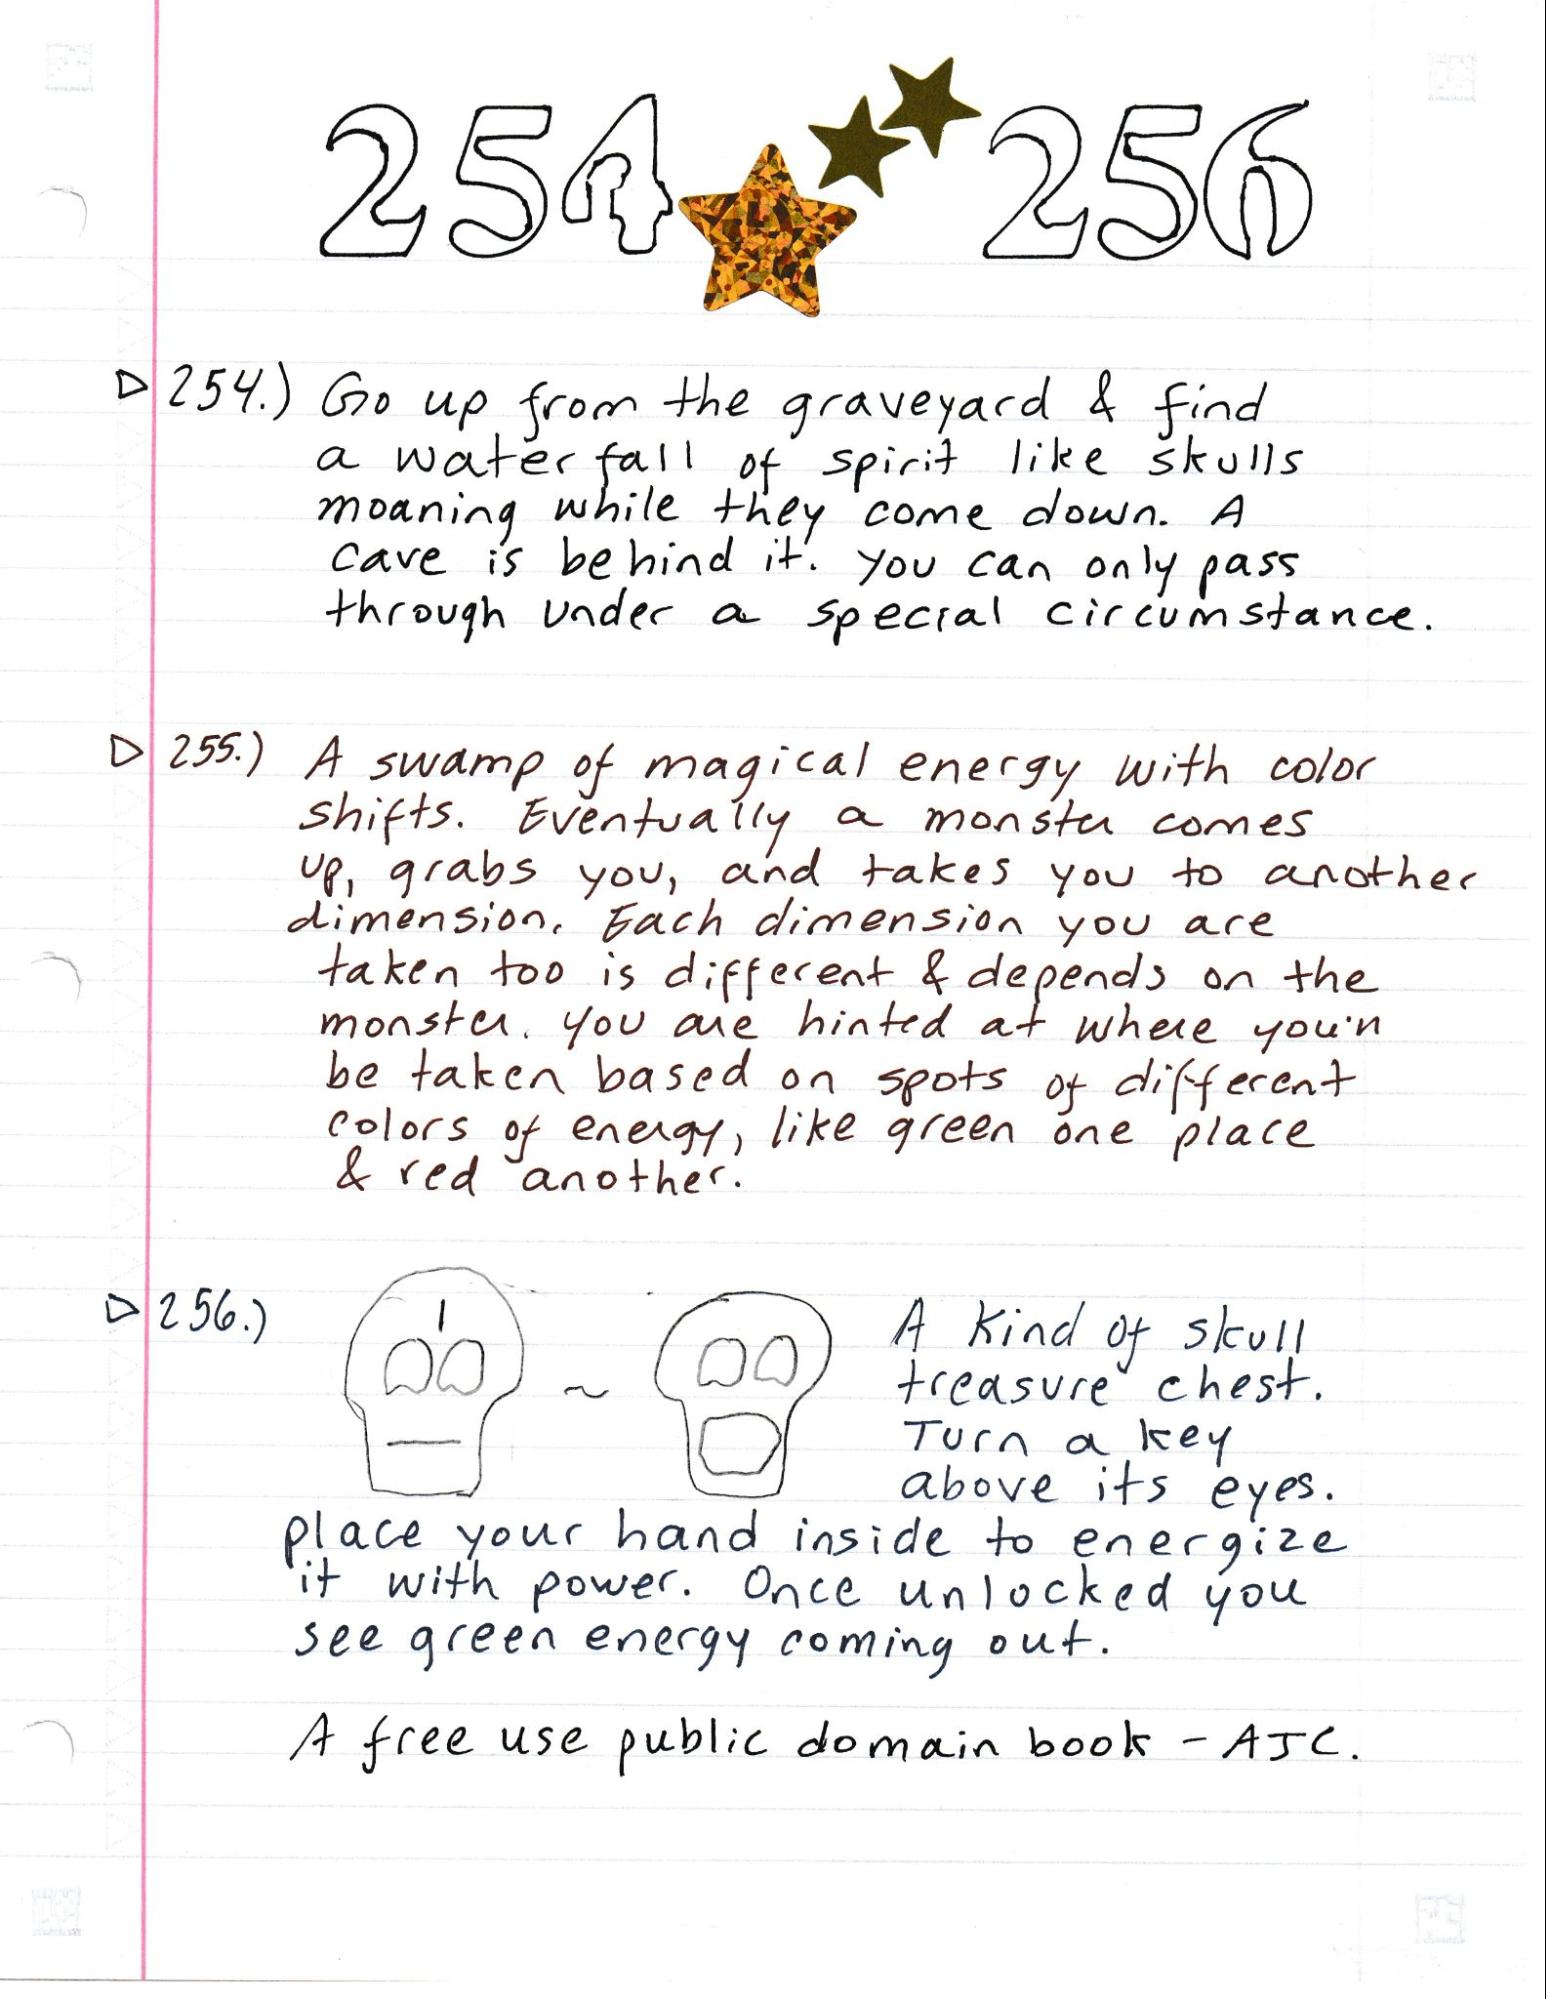 254 256
254.) Go up from the graveyard & find
a waterfall of spirit like skulls
moaning while they come down. A
cave is behind it. You can only pass
through under a special circumstance.
255.) A swamp of magical energy with color
shifts. Eventually a monster comes
up, grabs you, and takes you to another
dimension. Each dimension you are
taken too is different & depends on the
monster. You are hinted at where you'll
be taken based on spots of different
colors of energy, like green one place
& red another.
256.) ~ A kind of skull
treasure chest.
Turn a key
above its eyes.
place your hand inside to energize
it with power. Once unlocked you
see green energy coming out.
A free use public domain book - AJC.